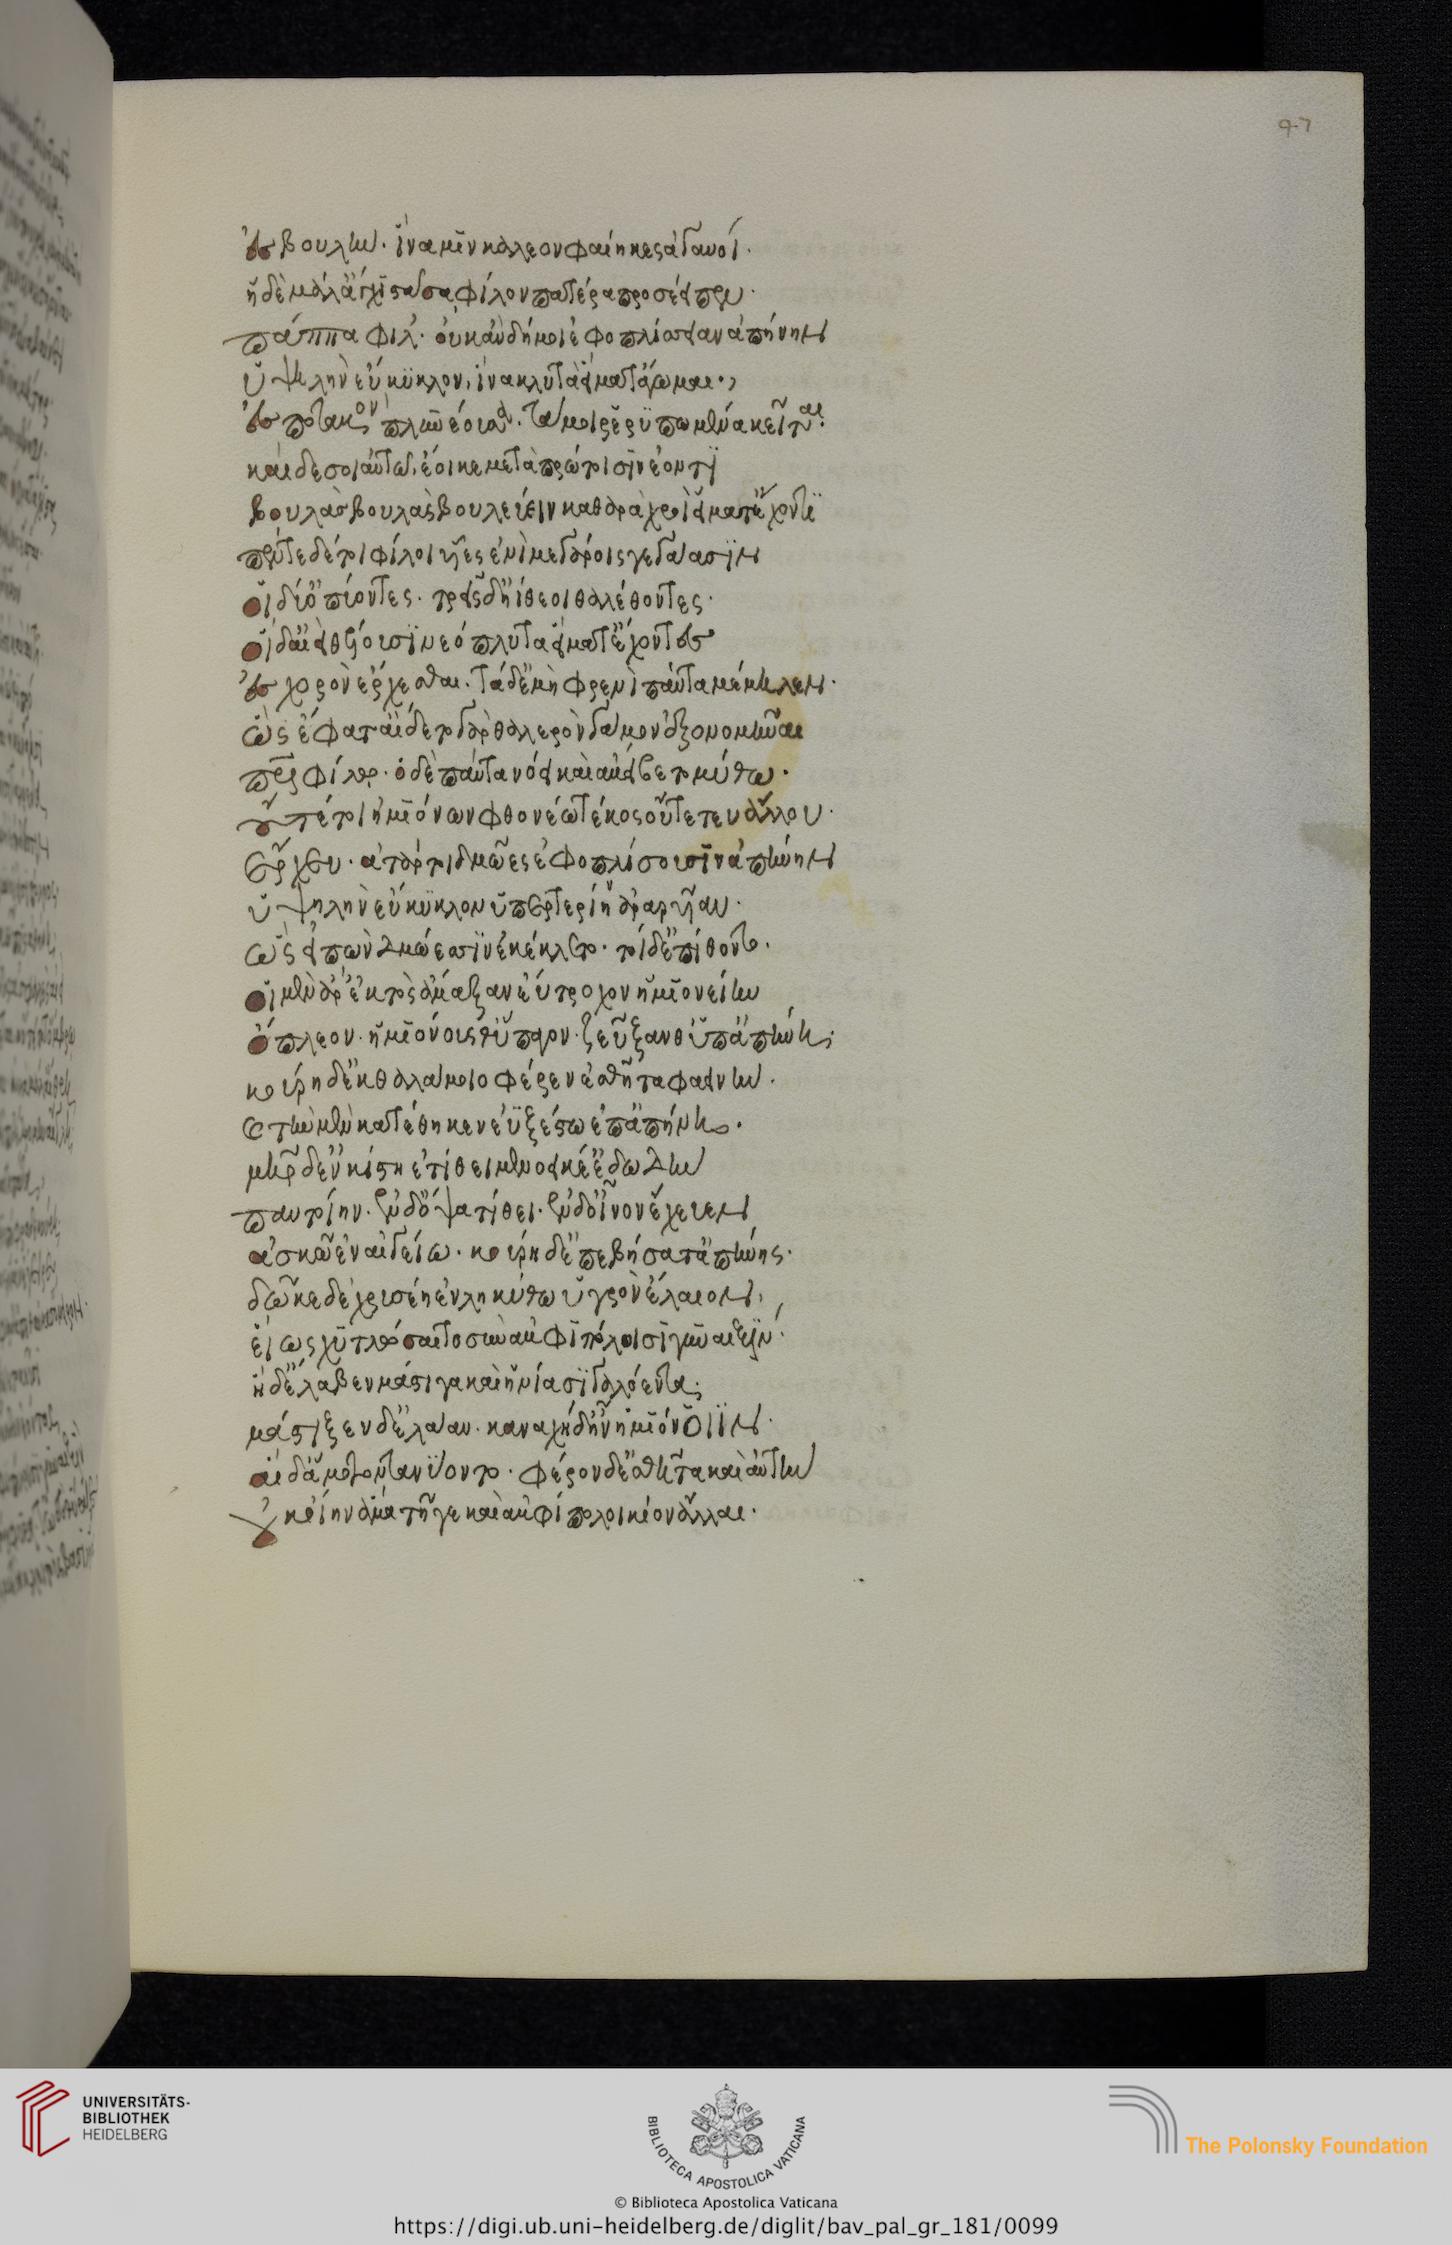 47
ἐς βουλὴν. ἵνα μῖν κάλεον φαίηκες ἀγαυοί.
ἡ δὲ μάλ' ἄγχι στᾶσα φίλον πατέρα προσέειπεν.
πάππα φίλ'. οὐκ ἂν δή μοι ἐφοπλίσειαν ἀπήνην
ὑψηλὴν εὔκυκλον, ἵνα κλυτὰ εἵματ' ἄγωμαι.
ἐς ποταμὸν πλυνέουσα. τά μοι ῥερυπωμένα κεῖται.
καὶ δὲ σοὶ αὐτῷ, ἔοικε μετὰ πρώτοισιν ἐόντι
βουλὰς βουλὰς βουλεύειν καθαρὰ χροῒ εἵματ' ἔχοντι
πέντε δέ τοι φίλοι υἷες ἐνὶ μεγάροις γεγάασιν
οἱ δύ' ὀπύοντες. τρεῖς δ' ἠΐθεοι θαλέθοντες.
οἱ δ' αἰεὶ ἐθέλουσι νεόπλυτα εἵματ' ἔχοντες
ἐς χορὸν ἔρχεσθαι. τάδ' ἐμῇ φρενὶ πάντα μέμηλεν.
ὣς ἔφατ' αἴδετο γὰρ θαλερὸν γάμον ἐξονομῆναι
πατρὶ φίλῳ. ὁ δὲ πάντα νόει καὶ ἀμείβετο μύθῳ.
οὔτέ τοι ἡμιόνων φθονέω τέκος οὔτέ τευ ἄλλου.
ἔρχευ. ἀτάρ τοι δμῶες ἐφοπλίσουσιν ἀπήνην
ὑψηλὴν εὔκυκλον ὑπερτερίῃ ἀραρυῖαν.
ὣς εἰπὼν δμώεσσιν ἐκέκλετο. τοὶ δ' ἐπίθοντο.
οἱ μὲν ἄρ' ἐκτὸς ἅμαξαν ἐύτροχον ἡμιονείην
ὅπλεον. ἡμιόνους θ' ὕπαγον. ζεῦξαν θ' ὑπ' ἀπήνῃ.
κούρη δ' ἐκ θαλάμοιο φέρεν ἐσθῆτα φαεινήν.
καὶ τὴν μὲν κατέθηκεν ἐϋξέστῳ ἐπ' ἀπήνῃ.
μήτηρ δ' ἐν κίστῃ ἐτίθει μενοεικέ' ἐδωδὴν
παντοίην. ἐν δ' ὄψα τίθει. ἐν δ' οἶνον ἔχευεν
ἀσκῷ ἐν αἰγείῳ. κούρη δ' ἐπεβήσατ' ἀπήνης.
δῶκε δὲ χρυσέῃ ἐν ληκύθῳ ὑγρὸν ἔλαιον,
εἵως χυτλώσαιτο σὺν ἀμφιπόλοισι γυναιξίν.
ἡ δ' ἔλαβεν μάστιγα καὶ ἡνία σιγαλόεντα.
μάστιξεν δ' ἐλάαν. καναχὴ δ' ἦν ἡμιόνοιϊν.
αἱ δ' ἄμοτον τανύοντο. φέρον δ' ἐσθῆτα καὶ αὐτὴν
οὐκ οἴην ἅμα τῇ γε καὶ ἀμφίπολοι κίον ἄλλαι.
UNIVERSITÄTS-
BIBLIOTHEK
HEIDELBERG
BIBLIOTECA APOSTOLICA VATICANA
© Biblioteca Apostolica Vaticana
The Polonsky Foundation
https://digi.ub.uni-heidelberg.de/diglit/bav_pal_gr_181/0099